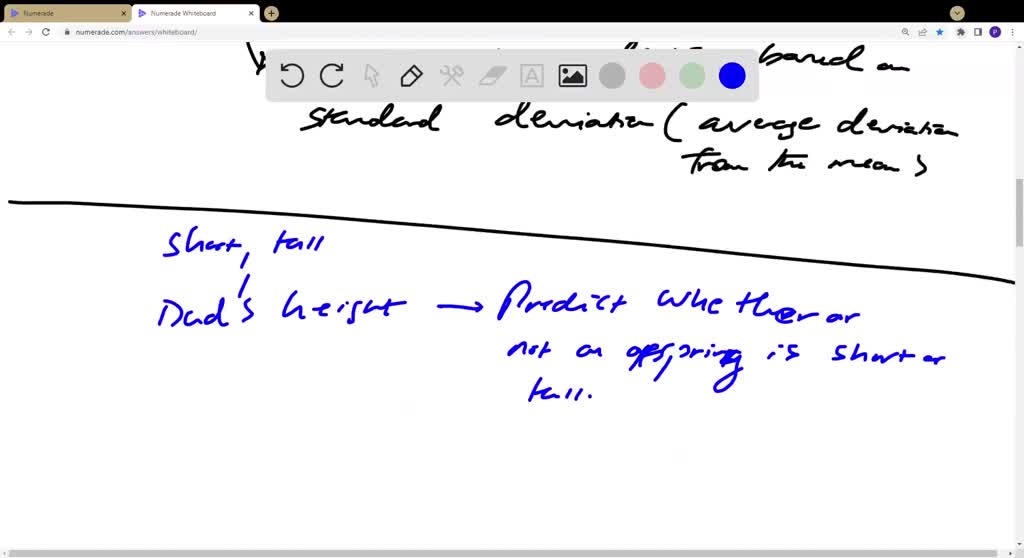 Numerade
Numerade Whiteboard
numerade.com/answers/whiteboard/
P
A
based on
standard deviation (average deviation
from the mean)
short, tall
Dad's height → Predict whether or
not an offspring is short or
tall.